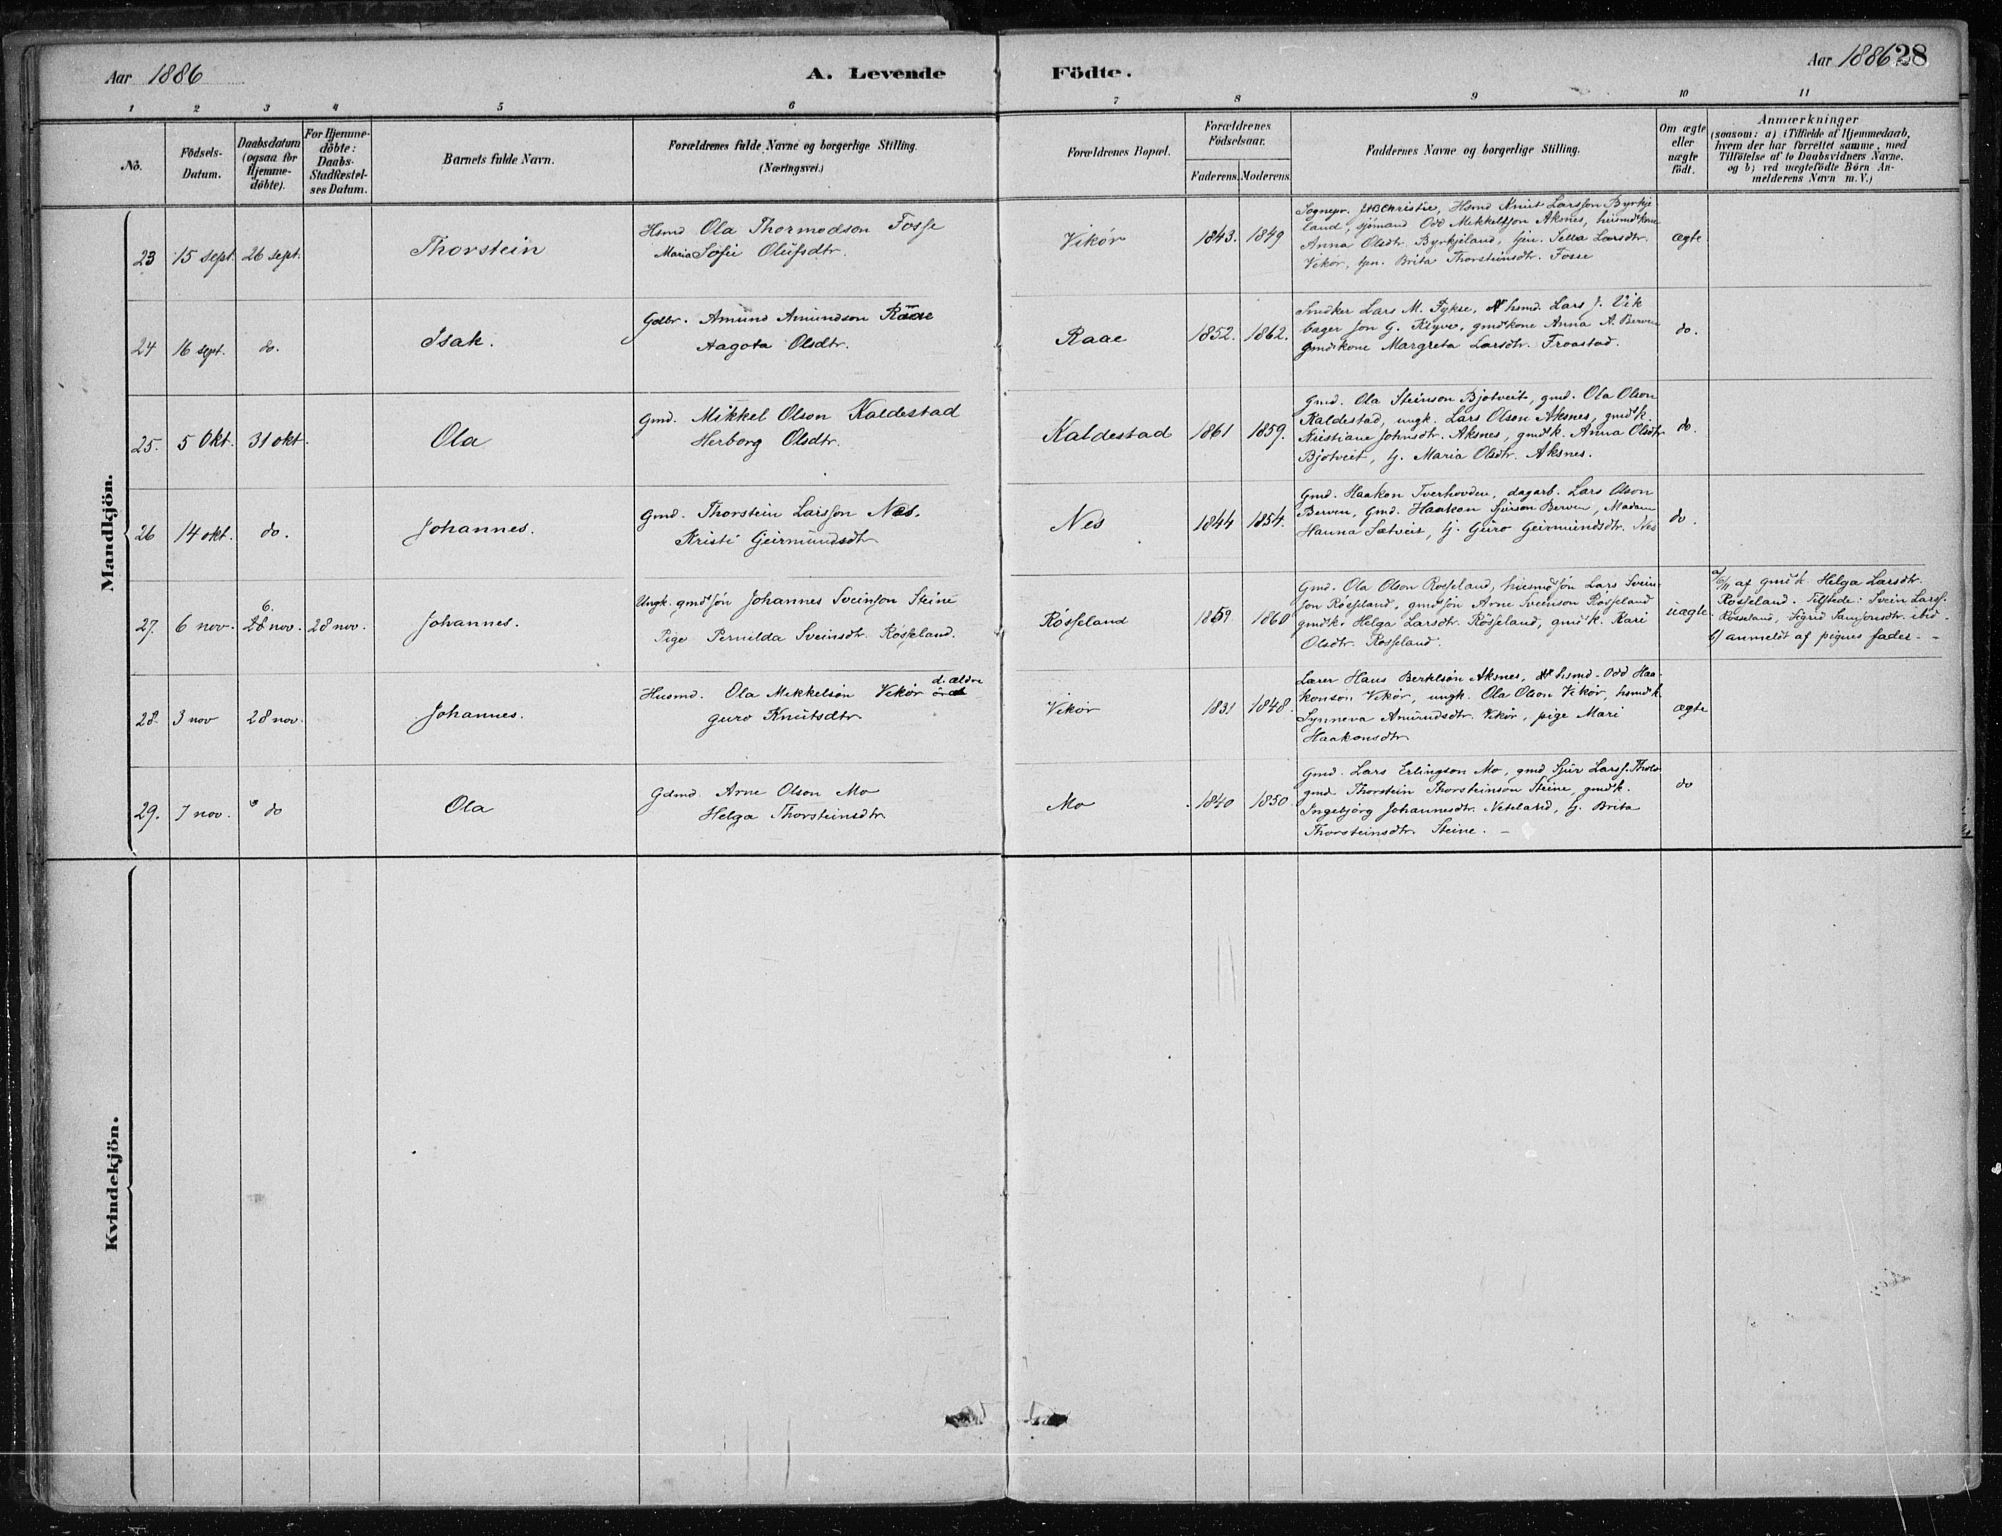 Aar 1886
A. Levende Födte.
Aar 1886
28
1 2 3 4 5 6 7 8 9 10 11
No.
Födsels-Datum.
Daabsdatum (ogsaa for Hjemmedöbte).
For Hjemmedöbte: Daabs-Stadfæstelses Datum.
Barnets fulde Navn.
Forældrenes fulde Navne og borgerlige Stilling. (Næringsvei.)
Forældrenes Bopæl.
Forældrenes Födselsaar.
Faderens. Moderens.
Faddernes Navne og borgerlige Stilling.
Om ægte eller uægte födt.
Anmærkninger
(saasom: a) i Tilfælde af Hjemmedaab, hvem der har forrettet samme, med Tilföielse af to Daabsvidners Navne, og b) ved uægtefödte Börn Anmelderens Navn m. V.)
Mandkjön.
23 15 sept. 26 sept. Thorstein
Hsmd Ola Thormodson Fosse
Maria Sofie Olufsdtr.
Vikør 1843. 1849
Sognepr. Christie, Hsmd Knut Larsson Byrkje
land, sjømand Odd Mikkelsson Aksnes, husmdkone
Anna Olsdtr. Byrkjeland, tjen. Sella Larsdtr.
Vikør, tjen. Brita Thorsteinsdtr. Fosse
ægte
24 16 sept. do. Isak.
Gdbr. Amund Amundson Raae
Aagota Olsdtr.
Raae 1852. 1862.
Snedker Lars M. Fykse, hsmd. Lars J. Vik
bager Jon G. Klyve, gmdkone Anna A. Berven
gmdkone Margreta Larsdtr. Froastad.
do.
25. 5 Okt. 31 okt. Ola
Gmd. Mikkel Olson Kaldestad
Herborg Olsdtr.
Kaldestad 1861 1859.
Gmd. Ola Steinson Bjotveit, gmd. Ola Olson
Kaldestad, ungk. Lars Olson Aksnes, gmdk.
Kristiane Johnsdtr. Aksnes, gmdk. Anna Olsdtr
Bjotveit, tj. Maria Olsdtr. Aksnes.
do.
26 14 okt. do. Johannes.
Gmd. Thorstein Larsson Nes.
Kristi Geirmundsdtr
Nes 1844 1854.
Gmd. Haakon Tverhovden, dagarb. Lars Olson
Berven, Gmd. Haakon Sjurson Berven, Madam
Hanna Sætveit, tj. Guro Geirmundsdtr. Nes
do.
27. 6 nov. 6. 28 nov. 28 nov. Johannes.
Ungk. gmdsøn Johannes Sveinson Steine
Pige Pernilda Sveinsdtr. Røsseland.
Røsseland 1859 1860
Gmd. Ola Olson Røsseland, husmdsøn Lars Svein
son Røsseland, gmdsøn Arne Sveinson Røsseland
gmdk. Helga Larsdtr. Røsseland, gmdk. Kari
Olsdtr. Røsseland.
uægte
a/ 6/11 af gmdk. Helga Larsdtr.
Røsseland. Tilstede: Svein Larss.
Røsseland, Sigrid Samsonsdtr. ibid.
b/ anmeldt af pigens fader. -
28. 3 nov 28 nov. Johannes.
Husmd. Ola Mikkelson Vikør d. ældre
Guro Knutsdtr
Vikør 1831 1848.
Lærer Hans Berklson Aksnes, hsmd. Odd Haa-
konson Vikør, ungk. Ola Olson Vikør, hsmdk.
Synneva Amundsdtr. Vikør, pige Mari
Haakonsdtr.
ægte
29. 7 nov. do Ola
Gdmd. Arne Olson Mo
Helga Thorsteinsdtr.
Mo 1840 1850.
Gmd. Lars Erlingson Mo, gmd Sjur Larss.
gmd Thorstein Thorsteinson Steine, gmdk.
Ingebjørg Johannesdtr. Neteland, tj. Brita
Thorsteinsdtr. Steine. -
do
Kvindekjön.